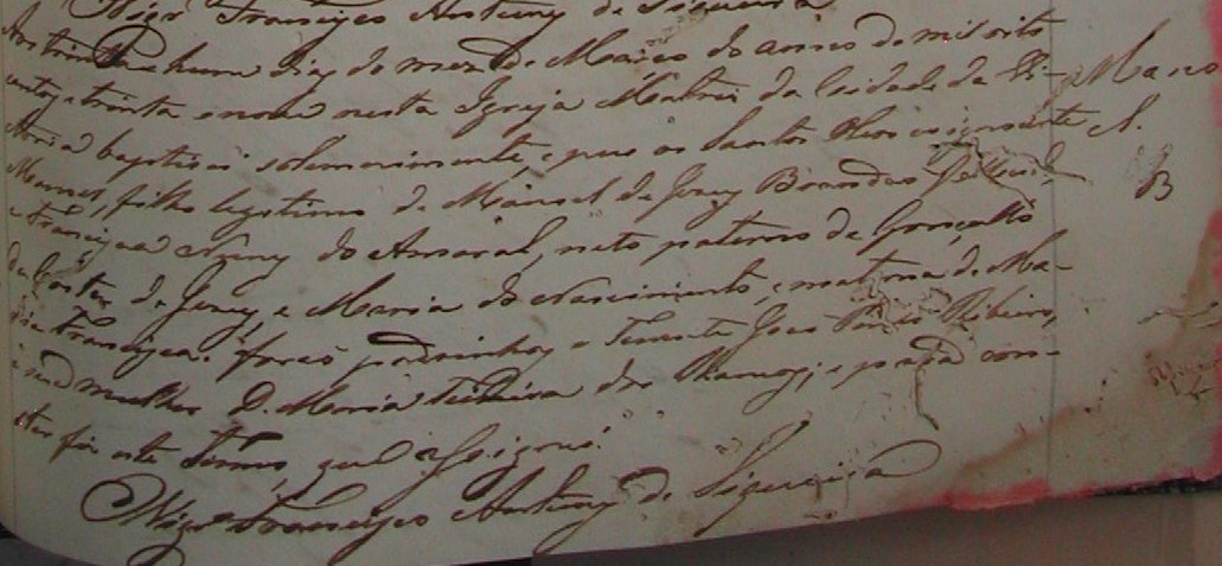 Vigr.o Francisco Antunes de Siqueira
Aos trinta e hum dias do mez de Março do anno de mil oito
centos e trinta e nove nesta Igreja Matriz da Cidade da Vi-
ctoria baptisei solemnemente, e pus os Santos Oleos ao innocente
Manoel, filho legitimo de Manoel de Jesus Brandão
e Francisca Nunes do Amaral, neto paterno de Gonçallo
da Costa de Jesus, e Maria do Nascimento, e materna de Ma-
ria Francisca: forão padrinhos o Tenente João Ribeiro,
e sua mulher D. Maria Teixeira das Chagas; e para con-
star fiz este termo, que assignei.
Vigr.o Francisco Antunes de Siqueira
Mano
B